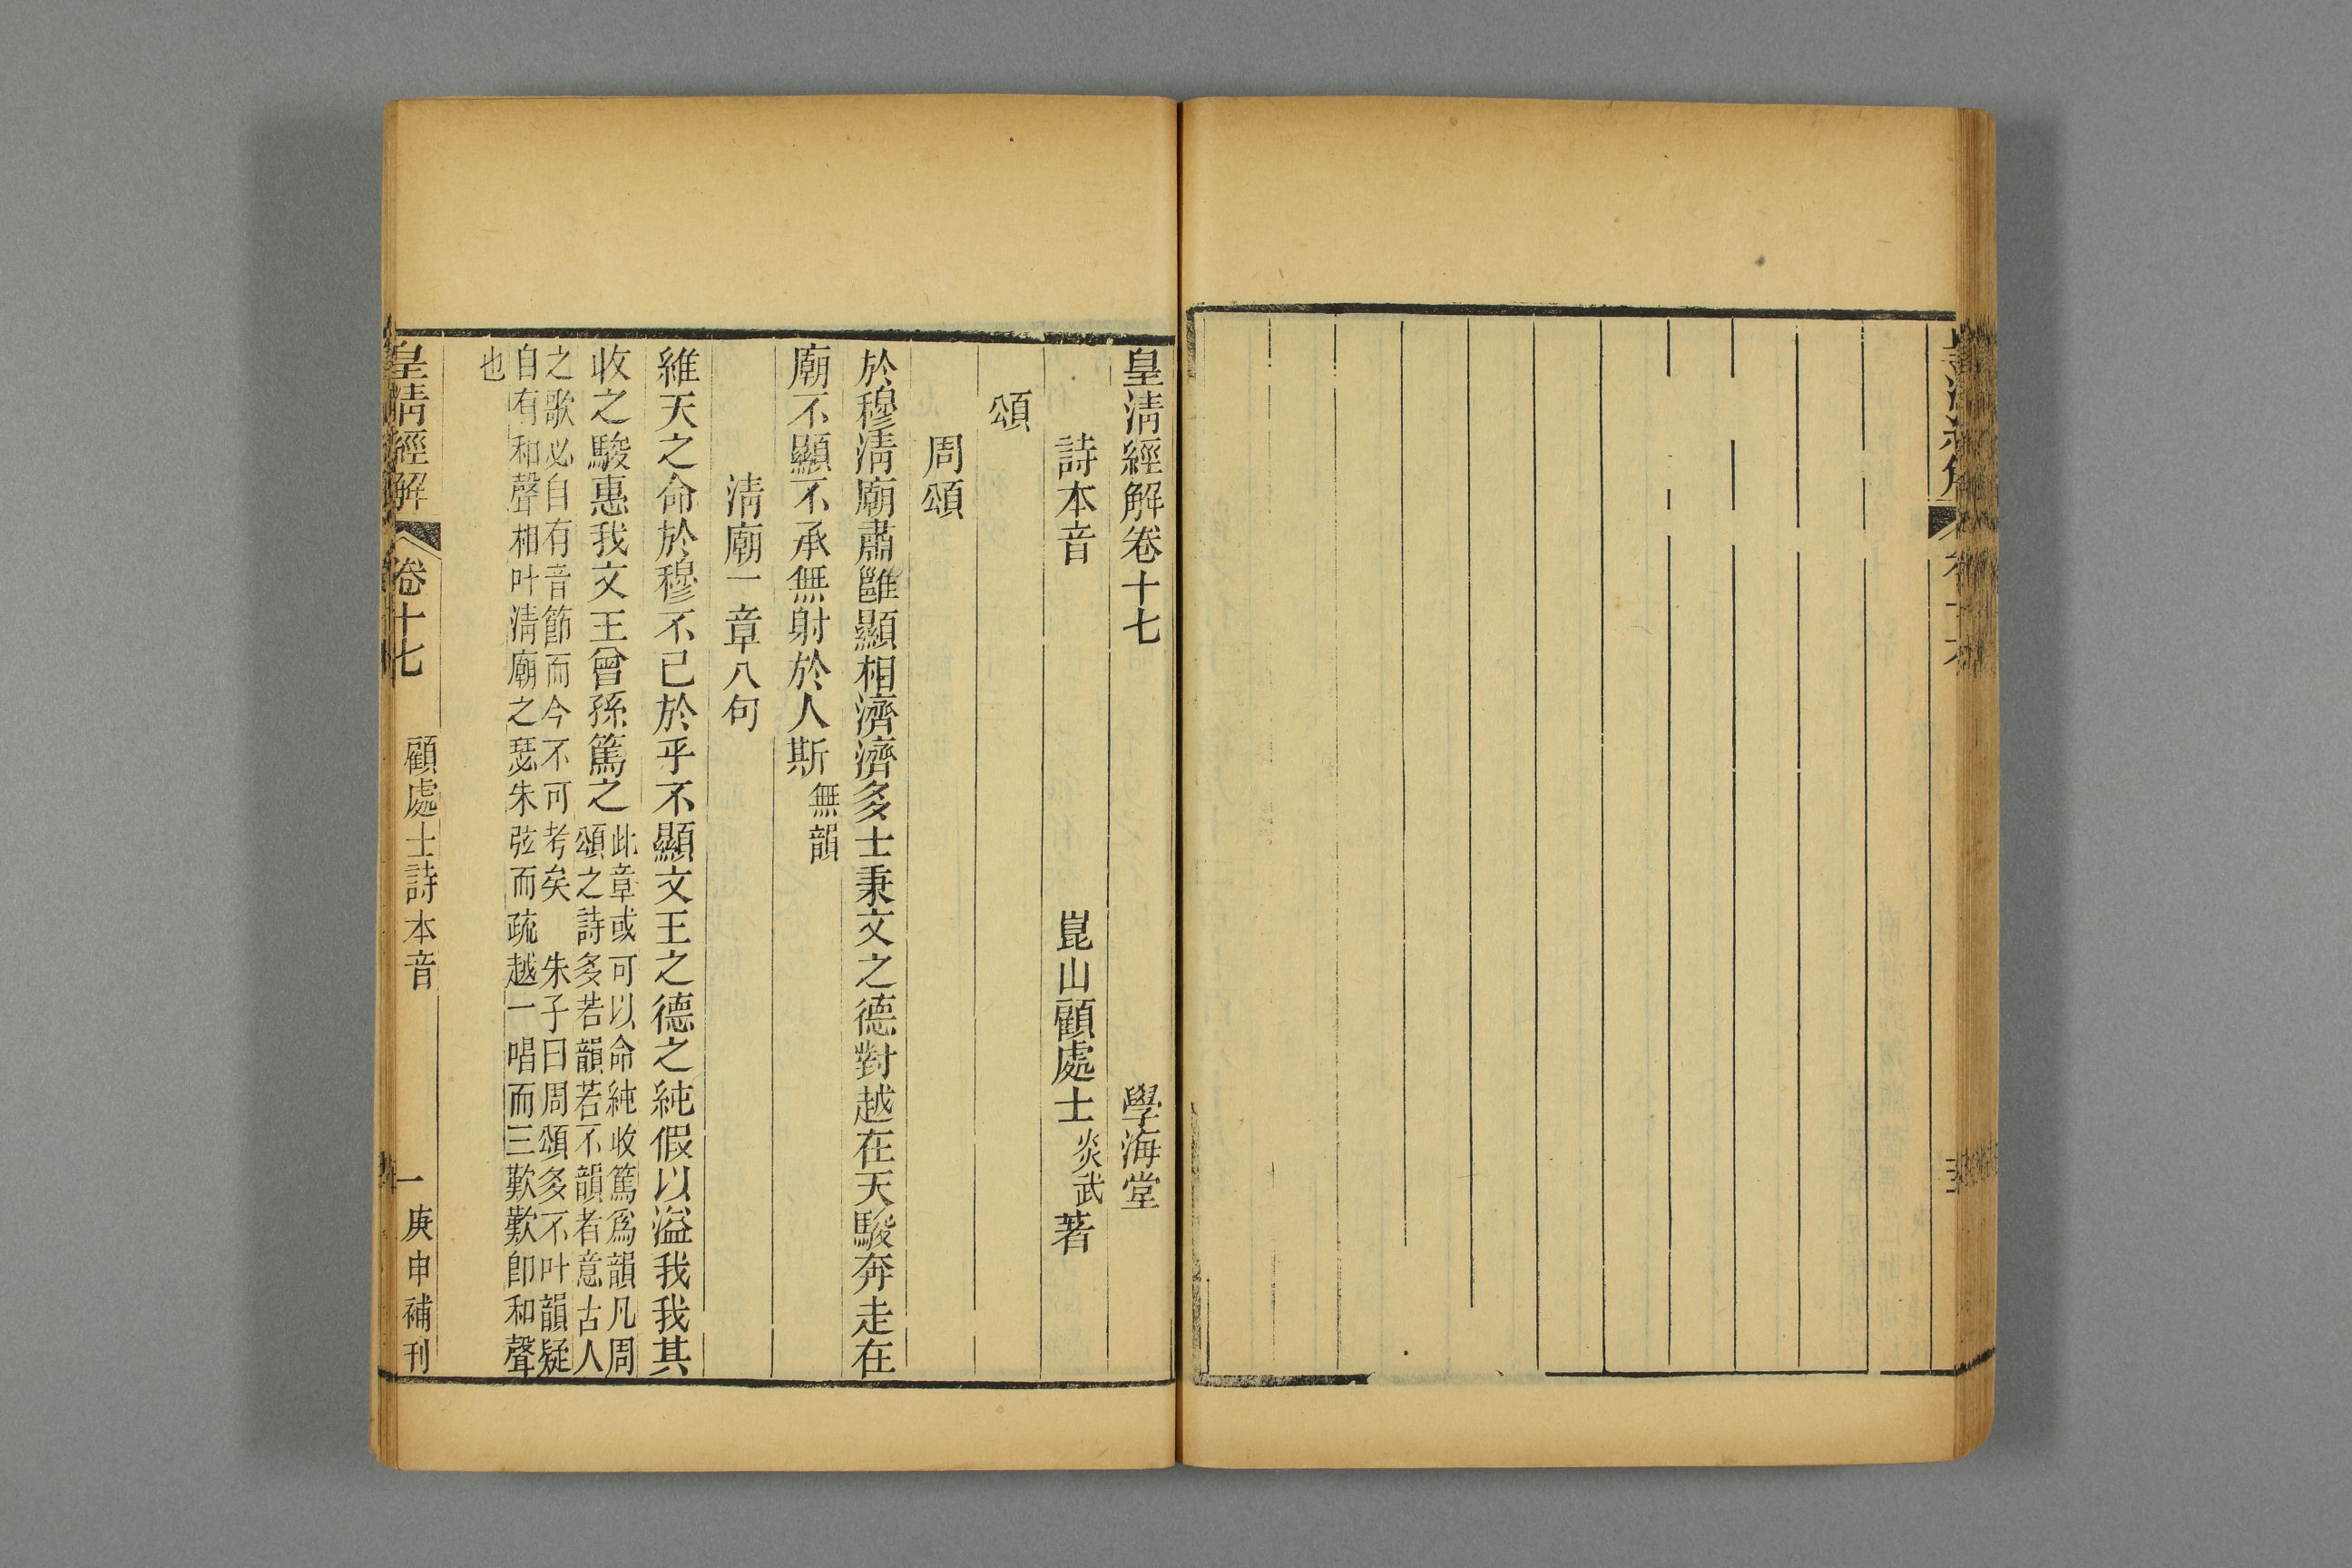 皇清經解卷十七　學海堂
詩本音　崑山顧處士炎武著
頌
周頌
於穆清廟肅雝顯相濟濟多士秉文之德對越在天駿奔走在
廟不顯不承無射於人斯無韻
清廟一章八句
維天之命於穆不已於乎不顯文王之德之純假以溢我我其
收之駿惠我文王曾孫篤之此章或可以命純收篤爲韻凡周
頌之詩多若韻若不韻者意古人
之歌必自有音節而今不可考矣　朱子曰周頌多不叶韻疑
自有和聲相叶清廟之瑟朱弦而疏越一唱而三歎歎卽和聲
也
皇清經解　卷十七　顧處士詩本音　一　庚申補刊